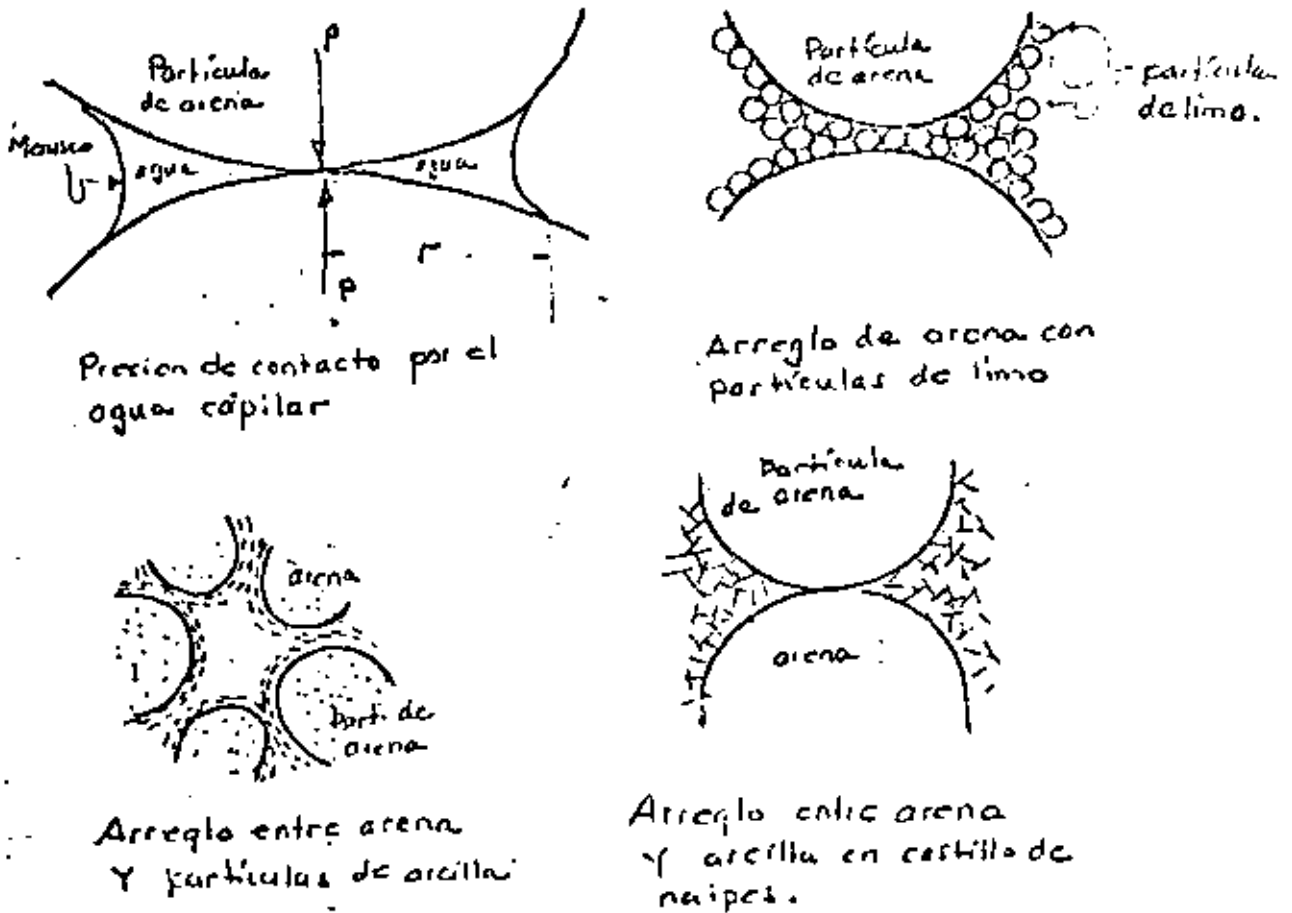 P
Partícula
de arena
Menisco
agua
agua
r
P
Presion de contacto por el
agua cápilar
Partícula
de arena
partícula
de limo.
Arreglo de arena con
partículas de limo
arena
1
Parti. de
arena
Arreglo entre arena
Y partículas de arcilla
Partícula
de arena
arena
Arreglo entre arena
Y arcilla en castillo de
naipes.